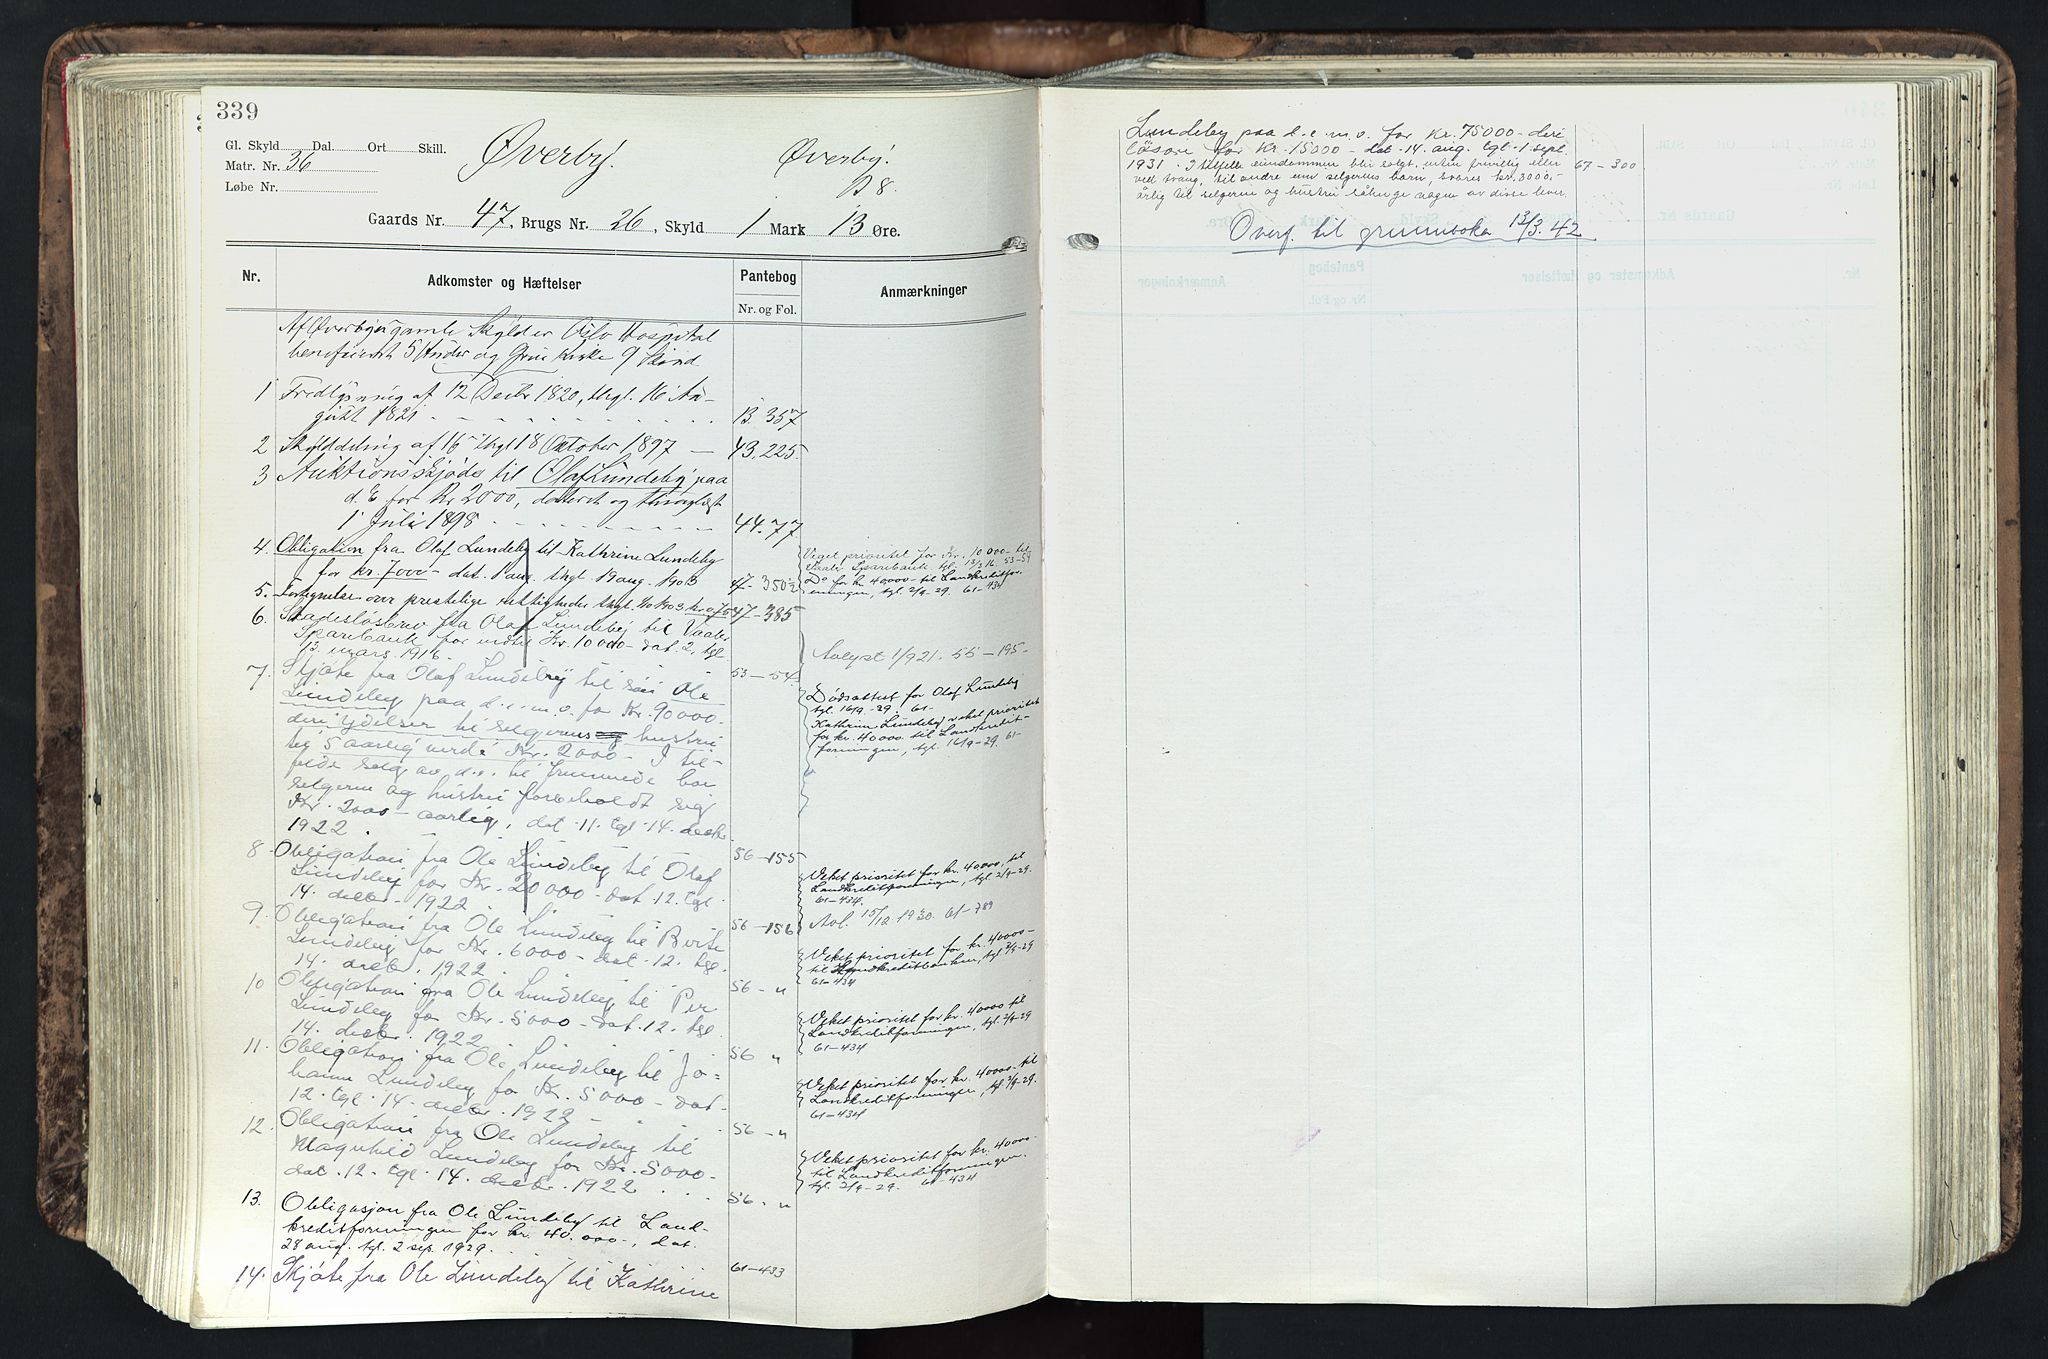 339
Gl. Skyld Dal. Ort Skill.
Matr. Nr. 36
Løbe Nr.
Øverby.
Øverby.
B 8.
Gaards Nr. 47, Brugs Nr. 26, Skyld 1 Mark 13 Øre.
Nr. Adkomster og Hæftelser Pantebog Anmærkninger
Nr. og Fol.
Af Øverbys gamle Skyld er Oslo Hospital
beneficeret 5 Huder og Grue Kirke 9 Skind
1 Fredlysning af 12 Decbr 1820, thgl. 16 Au-
gust 1821 13. 357
2 Skylddeling af 16 thgl 18 October 1897 — 43. 225.
3 Auktionsskjøde til Olaf Lundeby paa
d. E. for Kr 2000, dateret og thinglæst
1 Juli 1898 44. 77
4. Obligation fra Olaf Lundeby til Kathrine Lundeby
for kr. 7000 – dat. 1 aug. thgl. 19 aug. 1903 47 – 350½
Veget prioritet for Kr. 10 000 – til
Vaaler Sparebank tgl. 13/3 16. 53–54
Do for kr 40000 – til Landkreditfor-
eningen, tgl. 2/9 – 29. 61 – 434
5. Fortegnelse over prestelige rettigheder thgl. 47 – 385
6. Skadesløsbrev fra Olaf Lundeby til Vaaler
Sparebank for indtil Kr. 10 000 – dat. 2. tgl.
13. mars. 1916. 53 – 54.
Avlyst 1/9 21. 55 – 195 –
7. Skjøte fra Olaf Lundeby til søn Ole
Lundeby paa d. e. m. v. for Kr. 90 000 –
deri ydelser til selgerens hustru
til 5 aarlig verdi Kr. 2000 – I til-
fælde salg av d. e. til fremmede har
selgeren og hustru forbeholdt sig
Kr. 2000 – aarlig, dat. 11. tgl. 14. decbr.
1922. 56 – 155
Dødsattest for Olaf Lundeby
tgl. 16/9 – 29. 61 –
Kathrine Lundeby veket prioritet
for kr. 40000. til Landkredit-
foreningen, tgl. 16/9 – 29. 61 –
8. Obligation fra Ole Lundeby til Olaf
Lundeby for Kr. 20 000 – dat. 12. tgl.
14. decbr. 1922. 56 – 156
Veket prioritet for kr. 40000. til
Landkreditforeningen, tgl. 2/9 – 29.
61 – 434.
Avl. 15/12. 1930. 61 – 789
9. Obligation fra Ole Lundeby til Berte
Lundeby for Kr. 6000 – dat. 12. tgl.
14. decbr. 1922. 56 – "
Veket prioritet for kr. 40000 –
til Landkreditbanken, tgl 2/9 – 29
61 – 434
10 Obligation fra Ole Lundeby til Per
Lundeby for Kr. 5000 – dat. 12. tgl.
14. decbr. 1922 56 "
Veket prioritet for kr. 40000 til
Landkreditforeningen, tgl. 2/9 – 29
61 – 434
11. Obligation fra Ole Lundeby til Jo=
hanne Lundeby for Kr. 5000 – dat.
12. tgl. 14. decbr. 1922 56 – "
Veket prioritet for kr. 40000 – til
Landkreditforeningen, tgl 2/9 – 29.
61 – 434
12. Obligation fra Ole Lundeby til
Magnhild Lundeby for Kr. 5000 –
dat. 12. tgl. 14. decbr. 1922 56 – "
Veket prioritet for kr. 40000.
til Landkreditforeningen.
tgl. 2/9 – 29. 61 – 434
13. Obligasjon fra Ole Lundeby til Land-
kreditforeningen for kr. 40.000 –, dat.
28 aug. tgl. 2 sep. 1929. 61 – 433
14. Skjøte fra Ole Lundeby til Kathrine
Lundeby paa d. e. m. v. for kr. 75000 – deri
løsøre for kr. 15000 – dat. 14. aug. tgl. 1 sept.
1931. I tilfelle eiendommen blir solgt, enten frivillig eller 67 – 300
ved tvang, til andre enn selgerens barn, svares kr. 3000.–
årlig til selgeren og hustru sålenge nogen av disse lever.
Overf. til grunnboka 13/3. 42